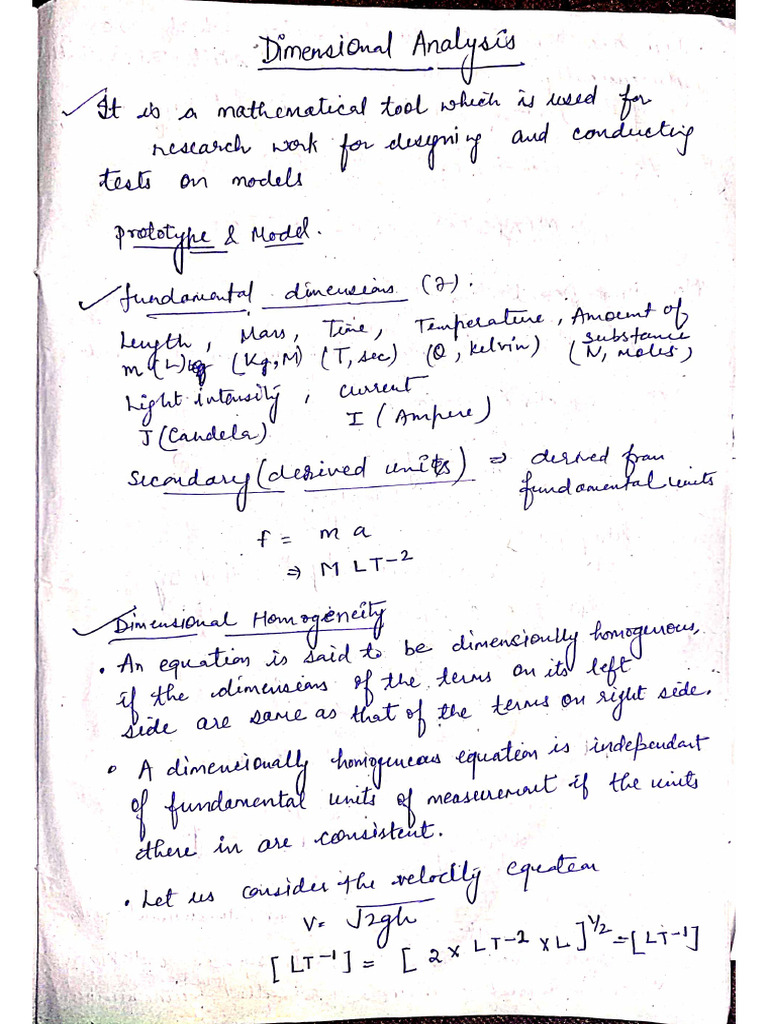 Dimensional Analysis
It is a mathematical tool which is used for
research work for designing and conducting
tests on models
Prototype & Model.
fundamental dimensions (7):
Length, Mass, Time, Temperature, Amount of
substance
m (L) (Kg, M) (T, sec) (θ, kelvin) (N, moles)
Light intensity, current
J (Candela) I (Ampere)
Secondary (derived units) ⇒ derived from
fundamental units
f = m a
⇒ M LT-2
Dimensional Homogeneity
• An equation is said to be dimensionally homogenous,
if the dimensions of the terms on its left
side are same as that of the terms on right side.
• A dimensionally homogeneous equation is independant
of fundamental units of measurement if the units
there in are consistent.
• Let us consider the velocity equation
V= √2gh
[LT-1] = [2 x LT-2 x L]1/2 = [LT-1]